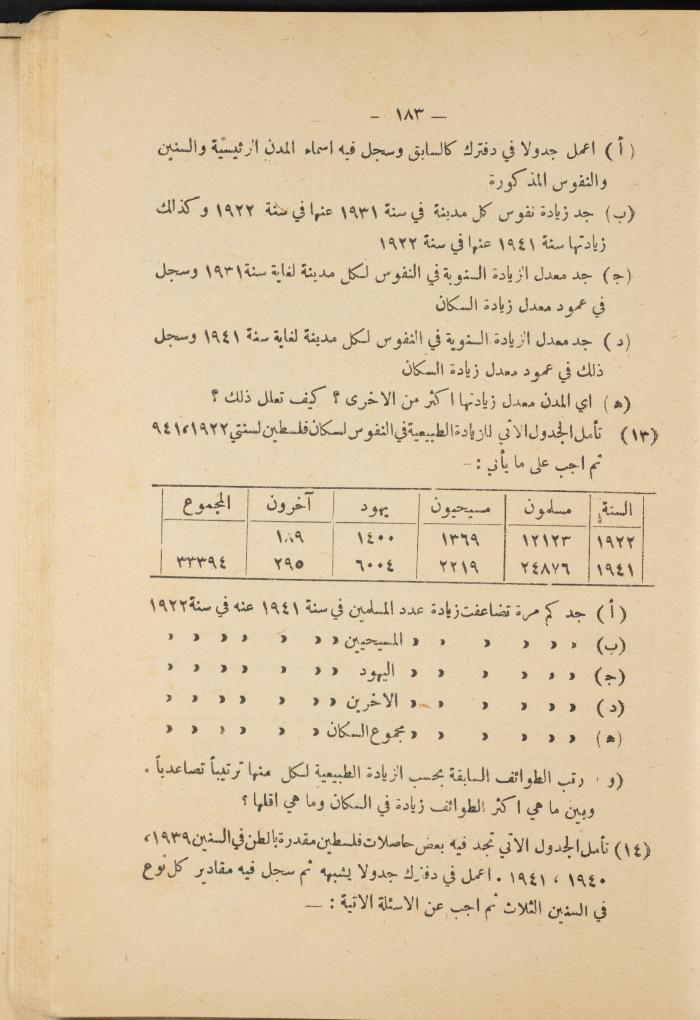 — ١٨٣ —
( أ ) اعمل جدولا في دفترك كالسابق وسجل فيه اسماء المدن الرئيسية والسنين
والنفوس المذكورة
(ب) جد زيادة نفوس كل مدينة في سنة ١٩٣١ عنها في سنة ١٩٢٢ وكذالك
زيادتها سنة ١٩٤١ عنها في سنة ١٩٢٢
(ج) جد معدل الزيادة السنوية في النفوس لكل مدينة لغاية سنة ١٩٣١ وسجل
في عمود معدل زيادة السكان
(د) جد معدل الزيادة السنوية في النفوس لكل مدينة لغاية سنة ١٩٤١ وسجل
ذلك في عمود معدل زيادة السكان
(ه) اي المدن معدل زيادتها اكثر من الاخرى ؟ كيف تعلل ذلك ؟
(١٣) تأمل الجدول الاتي للزيادة الطبيعية في النفوس لسكان فلسطين لسنتي ١٩٢٢، ٩٤١
ثم اجب على ما يأتي : —
السنة مسلمون مسيحيون يهود آخرون المجموع
١٩٢٢ ١٢١٢٣ ١٣٦٩ ١٤٠٠ ١٨٩
١٩٤١ ٢٤٨٧٦ ٢٢١٩ ٦٠٠٤ ٢٩٥ ٣٣٣٩٤
( أ ) جد كم مرة تضاعفت زيادة عدد المسلمين في سنة ١٩٤١ عنه في سنة ١٩٢٢
(ب) » » » » » » المسيحيين » » » » » » » »
(ج) » » » » » » اليهود » » » » » » » »
(د) » » » » » » الاخرين » » » » » » » »
(ه) » » » » » » مجموع السكان » » » » » » »
(و) رتب الطوائف السابقة بحسب الزيادة الطبيعية لكل منها ترتيباً تصاعدياً .
وبين ما هي اكثر الطوائف زيادة في السكان وما هي اقلها ؟
(١٤) تأمل الجدول الاتي تجد فيه بعض حاصلات فلسطين مقدرة بالطن في السنين ١٩٣٩،
١٩٤٠ ، ١٩٤١ . اعمل في دفترك جدولا يشبهه ثم سجل فيه مقادير كل نوع
في السنين الثلاث ثم اجب عن الاسئلة الاتية : —